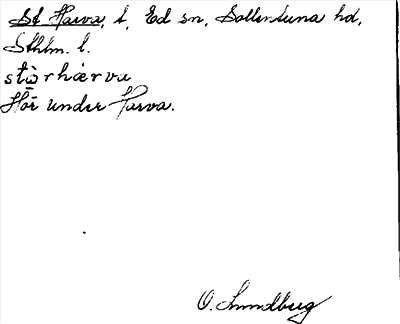 St Harva, t, Ed sn, Sollentuna hd,
Sthlm. l.
stòrhárvu
Hör under Harva.
O. Lundberg